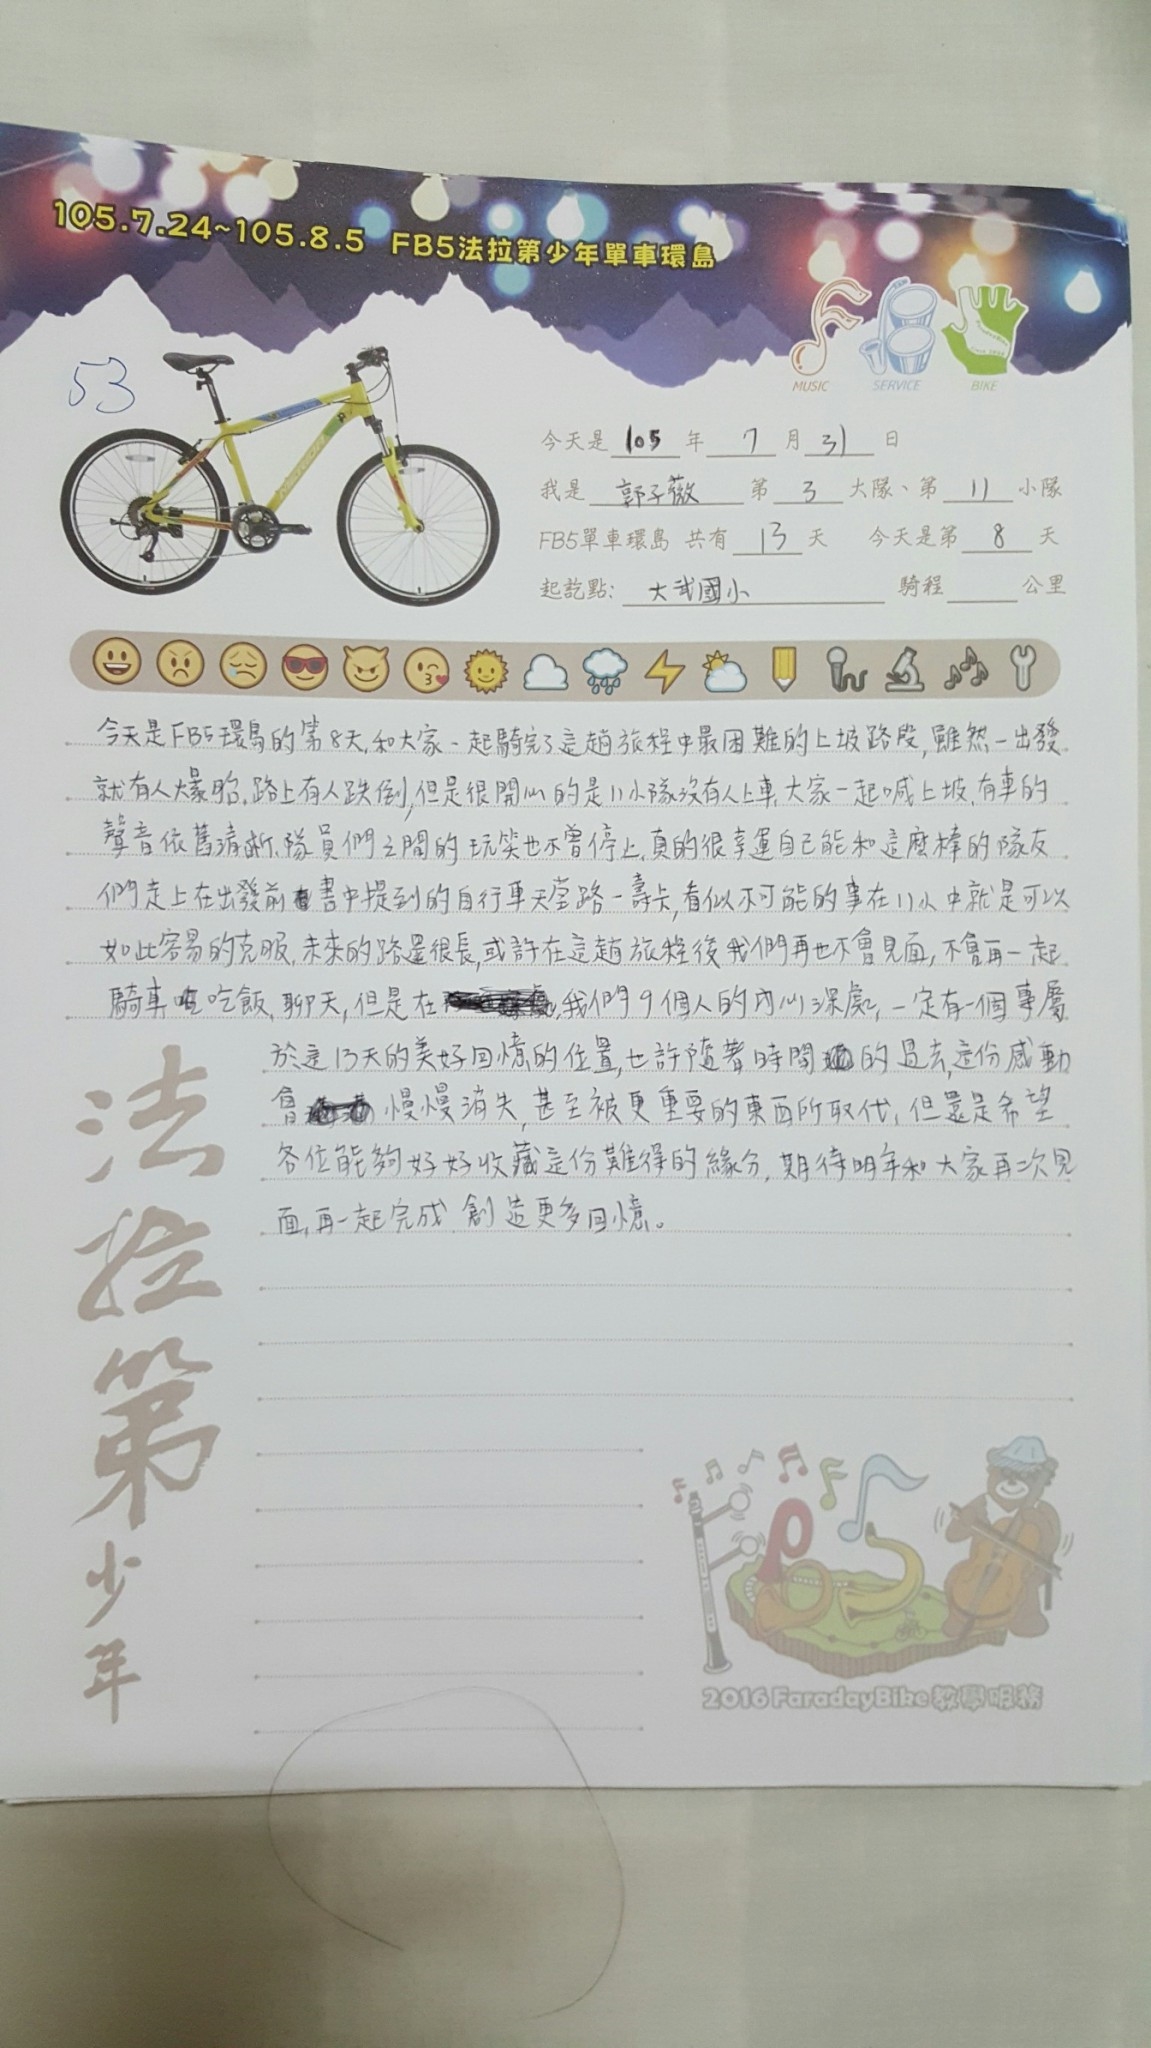 105.7.24~105.8.5 FB5法拉第少年單車環島
MUSIC SERVICE BIKE
53
今天是 105 年 7 月 31 日
我是 郭子薇 第 3 大隊、第 11 小隊
FB5單車環島 共有 13 天 今天是第 8 天
起訖點: 大武國小 騎程 公里
今天是FB5環島的第8天,和大家一起騎完了這趟旅程中最困難的上坡路段,雖然一出發
就有人爆胎,路上有人跌倒,但是很開心的是11小隊沒有人上車,大家一起喊上坡,有車的
聲音依舊清晰,隊員們之間的玩笑也不曾停止,真的很幸運自己能和這麼棒的隊友
們走上在出發前書中提到的自行車天堂路-壽卡,看似不可能的事在11小中就是可以
如此容易的克服,未來的路還很長,或許在這趟旅程後我們再也不會見面,不會再一起
騎車吃飯,聊天,但是在我們9個人的內心深處,一定有一個專屬
於這13天的美好回憶的位置,也許隨著時間的過去,這份感動
會慢慢消失,甚至被更重要的東西所取代,但還是希望
各位能夠好好收藏這份難得的緣分,期待明年和大家再次見
面,再一起完成,創造更多回憶。
法拉第少年
2016 FaradayBike 教學服務